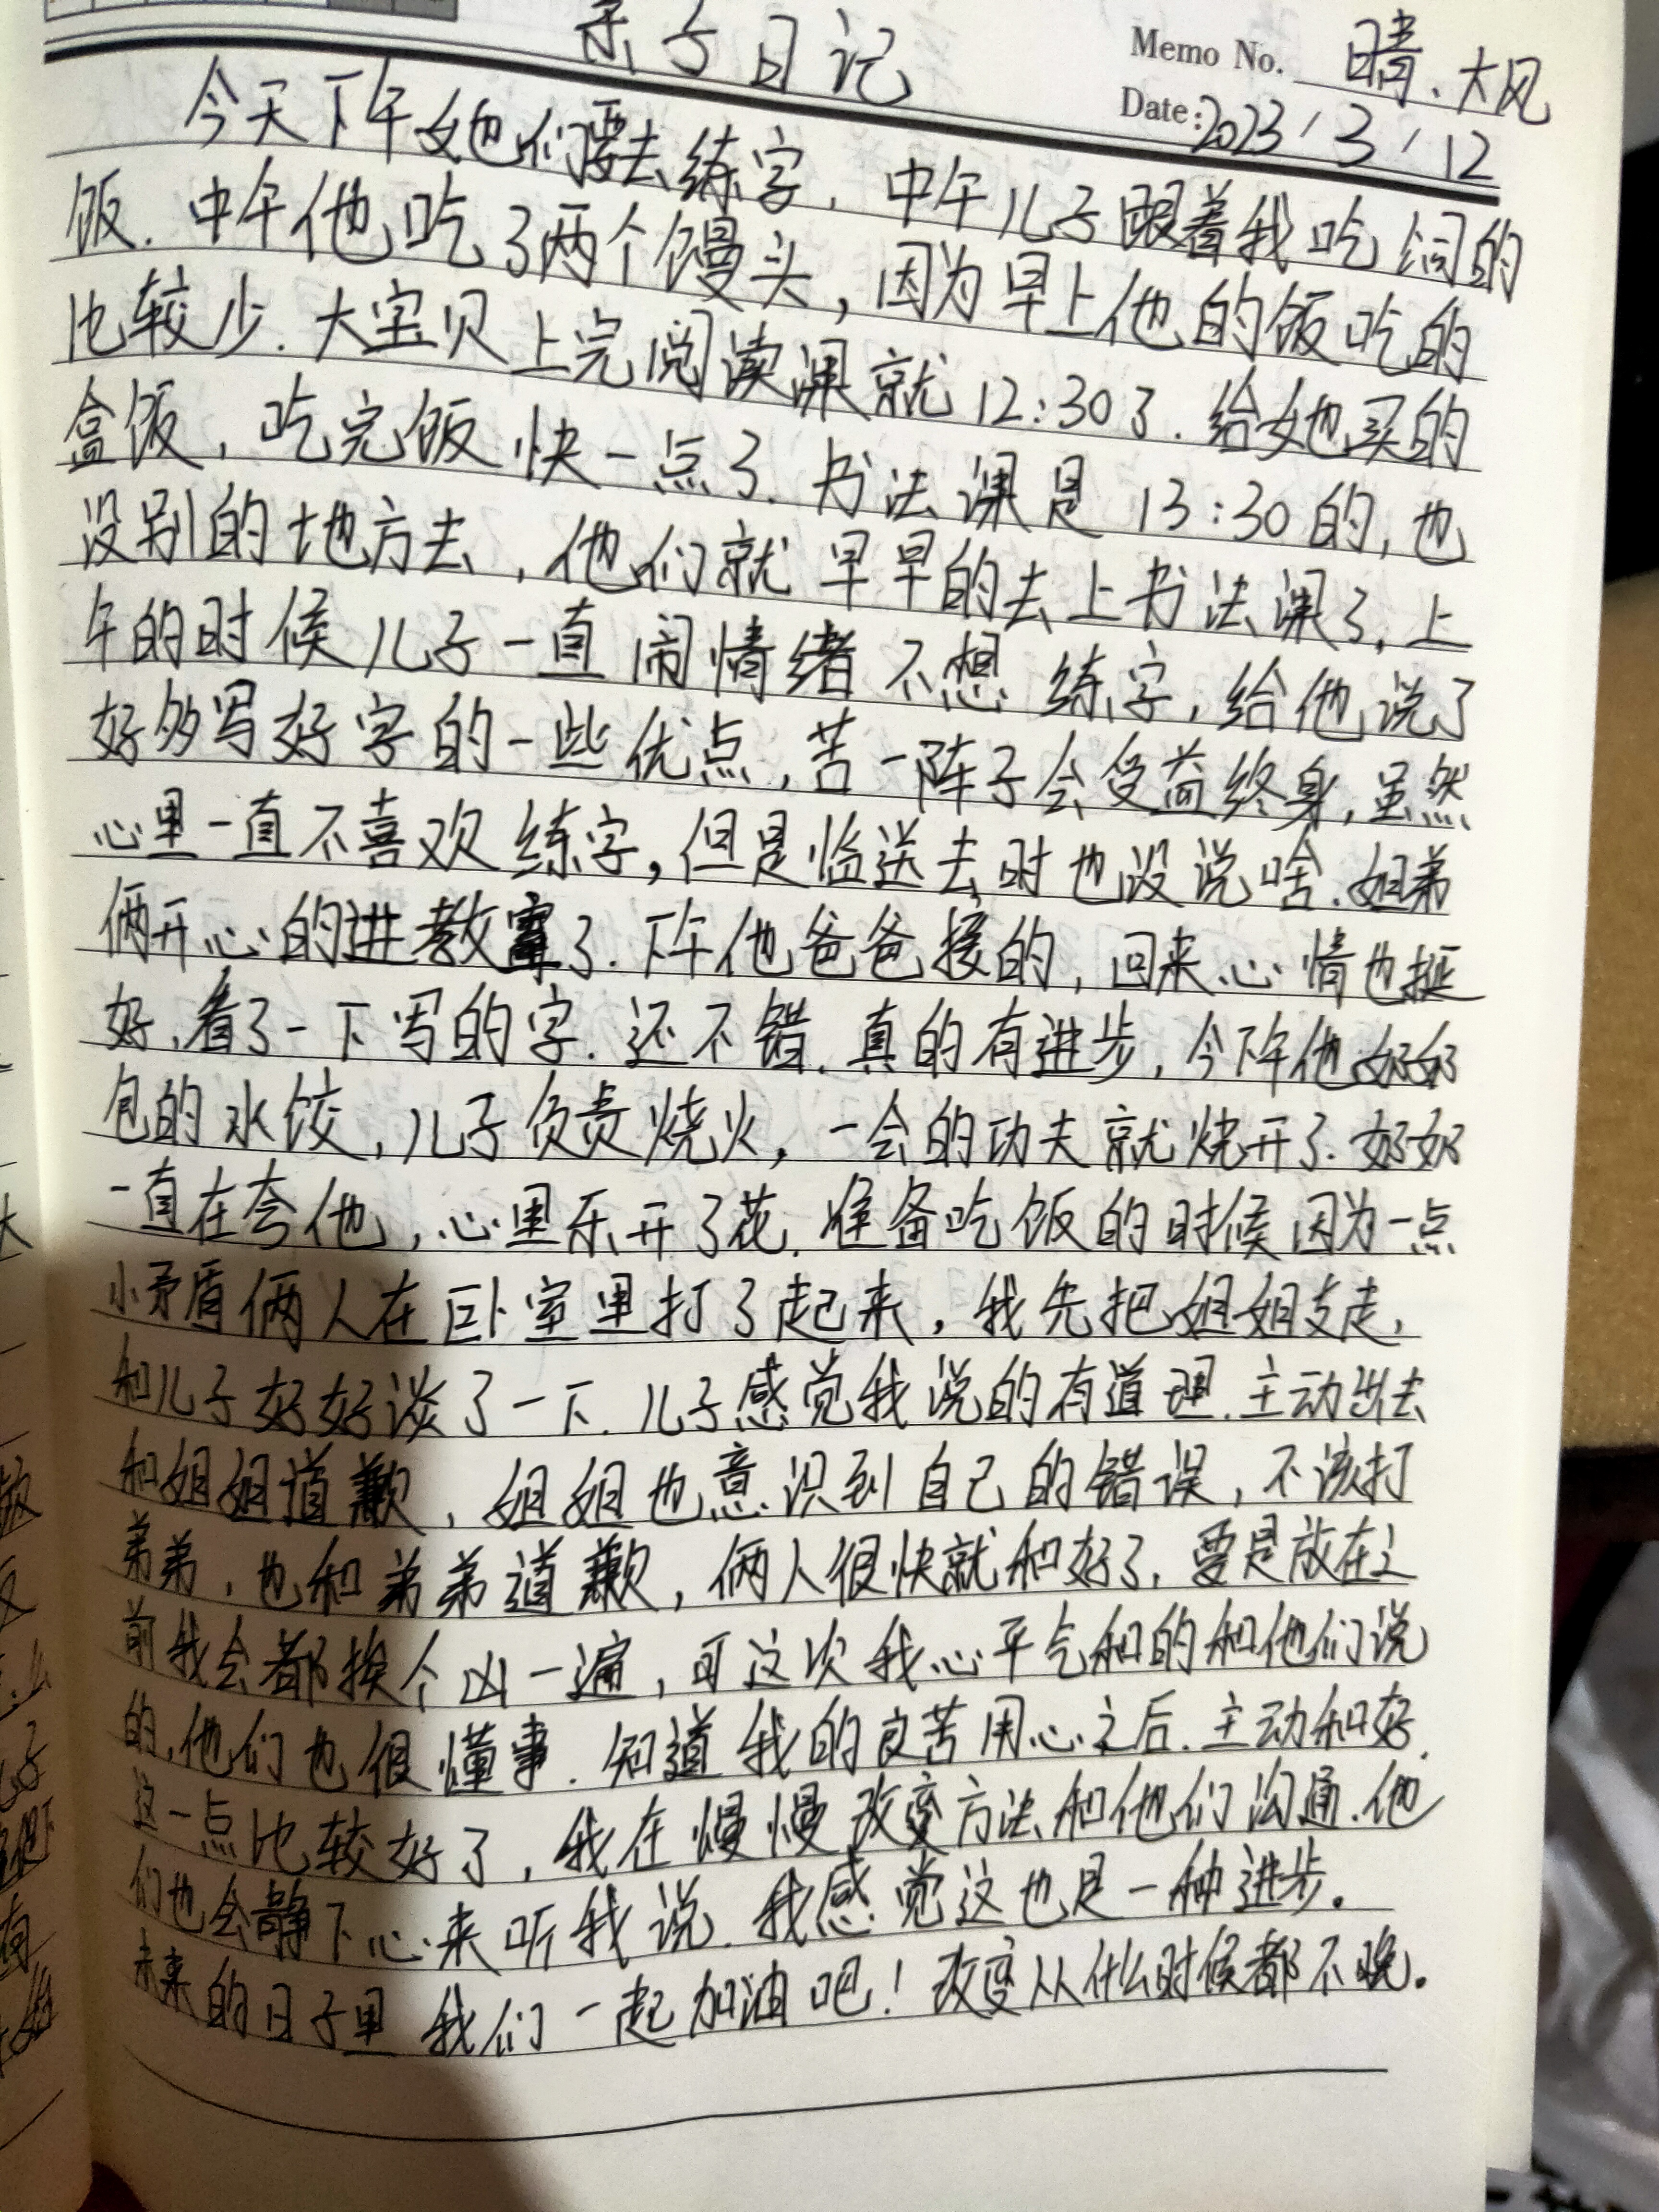 亲子日记
Memo No. 晴、大风
Date: 2023/3/12
今天下午她们要去练字，中午儿子跟着我吃饲的
饭．中午他吃了两个馒头，因为早上他的饭吃的
比较少．大宝贝上完阅读课就12:30了．给她买的
盒饭，吃完饭快一点了．书法课是13:30的，也
没别的地方去，他们就早早的去上书法课了，上
午的时候儿子一直闹情绪不想练字，给他说了
好多写好字的一些优点，苦一阵子会受益终身，虽然
心里一直不喜欢练字，但是临送去时也没说啥．姐弟
俩开心的进教室了．下午他爸爸接的，回来心情也挺
好，看了一下写的字．还不错．真的有进步，今下午他奶奶
包的水饺，儿子负责烧火，一会的功夫就烧开了．奶奶
一直在夸他，心里乐开了花．准备吃饭的时候因为一点
小矛盾俩人在卧室里打了起来，我先把姐姐支走，
和儿子好好谈了一下．儿子感觉我说的有道理．主动出去
和姐姐道歉，姐姐也意识到自己的错误，不该打
弟弟，也和弟弟道歉，俩人很快就和好了，要是放在之
前我会都挨个凶一遍，可这次我心平气和的和他们说
的，他们也很懂事．知道我的良苦用心之后．主动和好．
这一点比较好了，我在慢慢改变方法和他们沟通．他
们也会静下心来听我说．我感觉这也是一种进步。
未来的日子里我们一起加油吧！改变从什么时候都不晚。